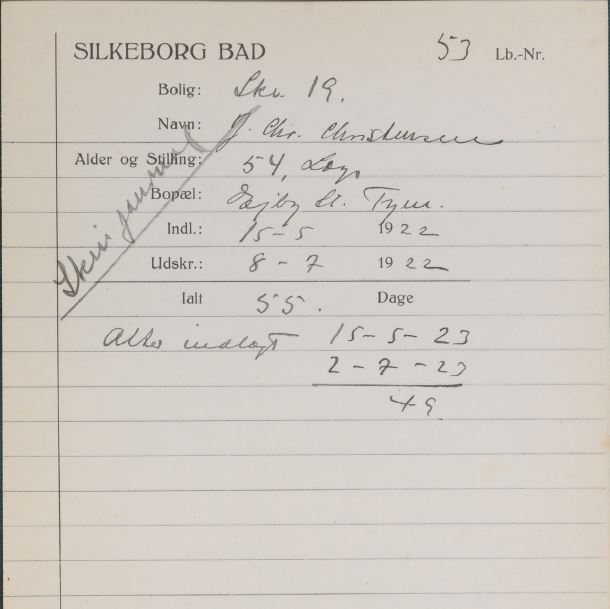 SILKEBORG BAD 53 Lb.-Nr.
Bolig: Skv. 19.
Navn: J. Chr. Christensen
Alder og Stilling: 54, Læge
Bopæl: Ejby St. Fyen.
Indl.: 15-5 1922
Udskr.: 8-7 1922
Ialt 55. Dage
Atter indlagt 15-5-23
2-7-23
49